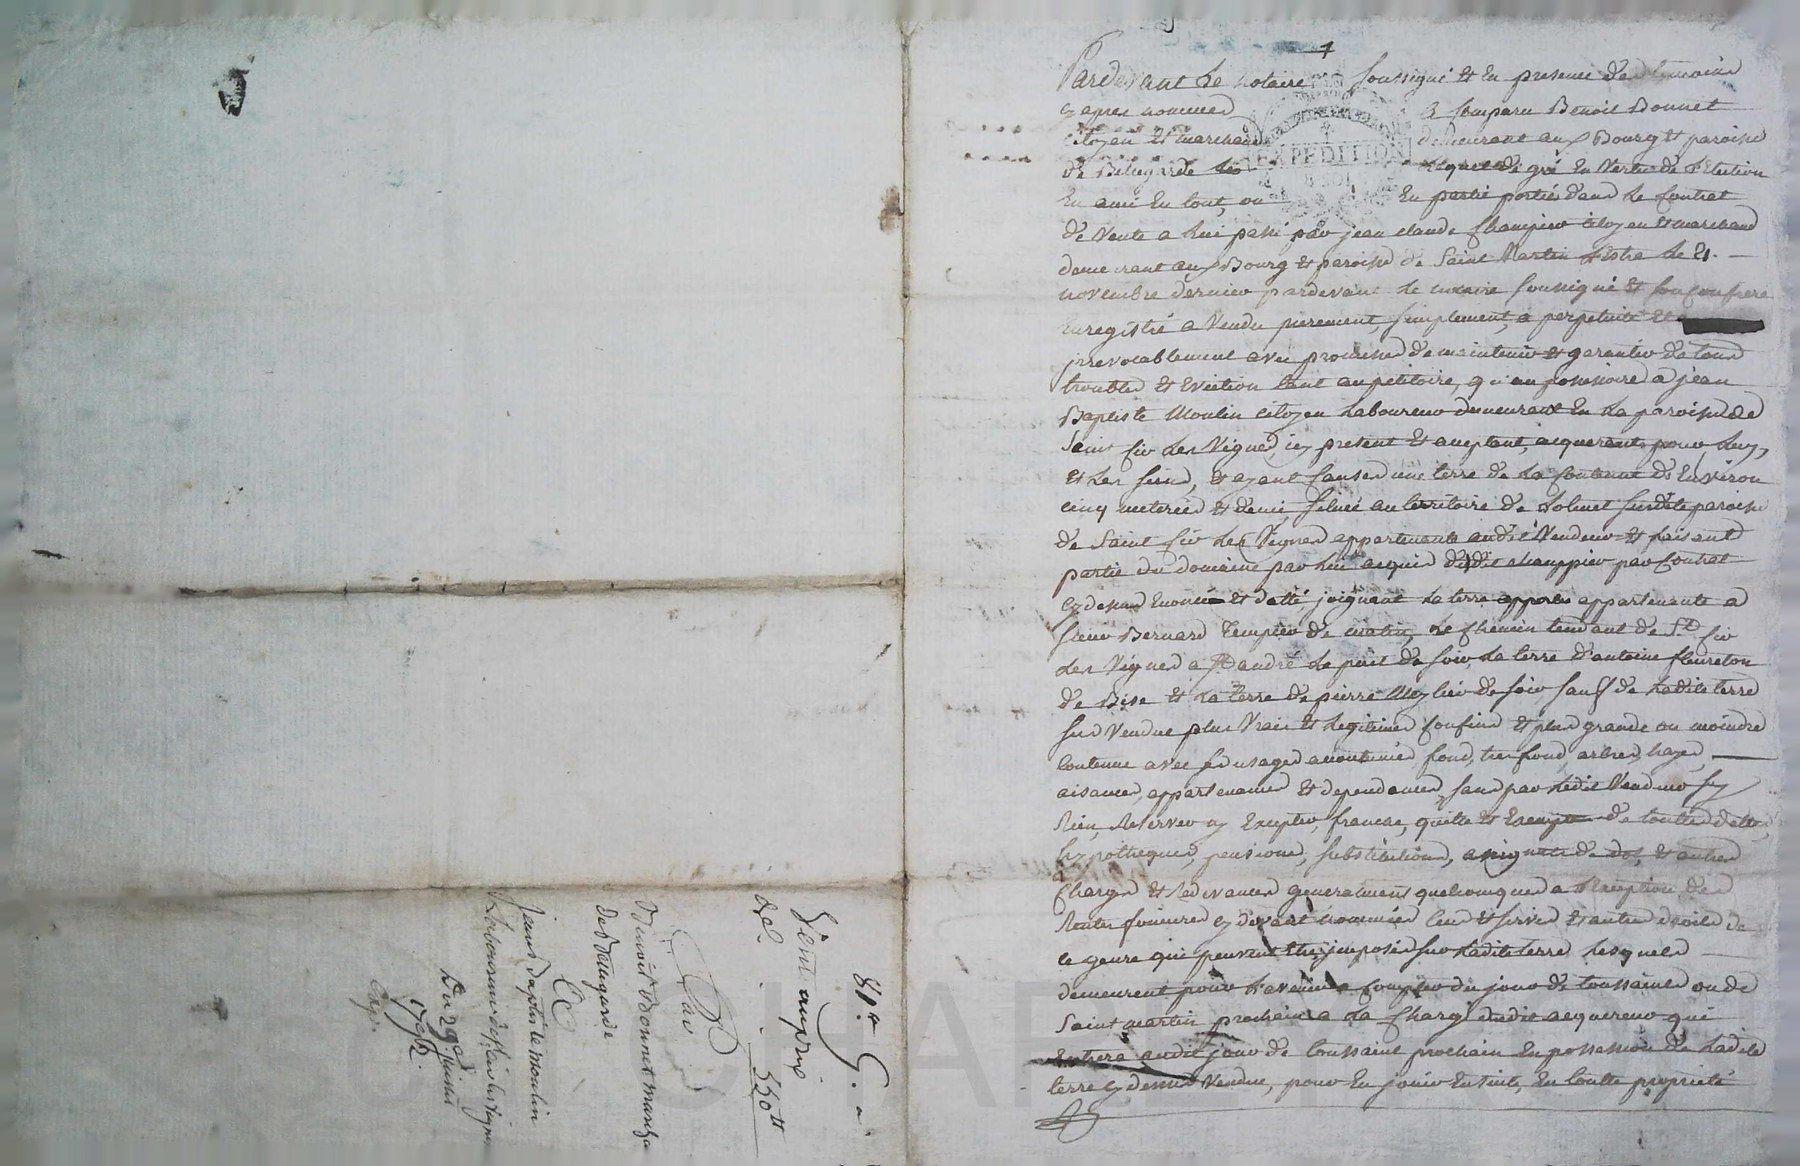 Pardevant le notaire soussigné et en presence des temoins
cy apres nommes a comparu Benoit Bonnet
citoyen et marchand demeurant au Bourg et paroisse
de Bellegarde lequel de gré en vertu de l'Election
en ami en tout, ou en partie portée dans le contrat
de vente a lui passé par jean claude Champier citoyen et marchand
demeurant au Bourg et paroisse de Saint Martin Lestra le 21.
novembre dernier pardevant le notaire soussigné et son confrere
Enregistré a vendu purement, simplement, a perpetuité et
irrevocablement avec promesse de maintenir et garantir de tous
troubles et eviction tant au petitoire, qu'au possessoire a jean
Baptiste Moulin citoyen laboureur demeurant en la paroisse de
Saint Cir les Vignes, icy present et acceptant, acquerant pour luy,
et les siens, et ayant cause une terre de la contenue d'Environ
cinq meterées et demi, située au territoire de sur ladite paroisse
de Saint Cir les Vignes appartenante audit Vendeur et faisant
partie du domaine par lui acquis dudit champier par contrat
cy dessus enoncé et datté, joignant la terre appartenante a
sieur Bernard Templier de matin, le chemin tendant de St. Cir
les Vignes a St. andré le puit de soir, la terre d'antoine fleureton
de Bise et la terre de pierre de soir, sauf de ladite terre
sus vendue plus vrais et legitimes confins et plus grande ou moindre
contenue avec ses usages accoutumés, fond, tresfond, arbres, hayes,
aisances, appartenances et dependances, sans par ledit vendeur s'y
Rien reserver ny excepter, franche, quitte et exempte de touttes dettes,
hypotheques, pensions, substitutions, de dot, et autres
charges et redevances generalement quelconques a l'exception des
Rentes foncieres cy devant nommées cens et servis et autres droits de
ce genre qui peuvent être imposés sur ladite terre lesquels
demeurent pour l'avenir a compter du jour de toussaint ou de
Saint martin prochain a la charge dudit acquereur qui
Entrera audit jour de toussaint prochain en possession de ladite
terre cy dessus vendue, pour en jouir ensuite, en toutte proprieté
EXPEDITION
Vente au prix
de 550tt
Par
Benoit Bonnet marchd
de Bellegarde
A
jean Baptiste moulin
Laboureur de St. cir les vignes
Du 29
1792.
Expn.